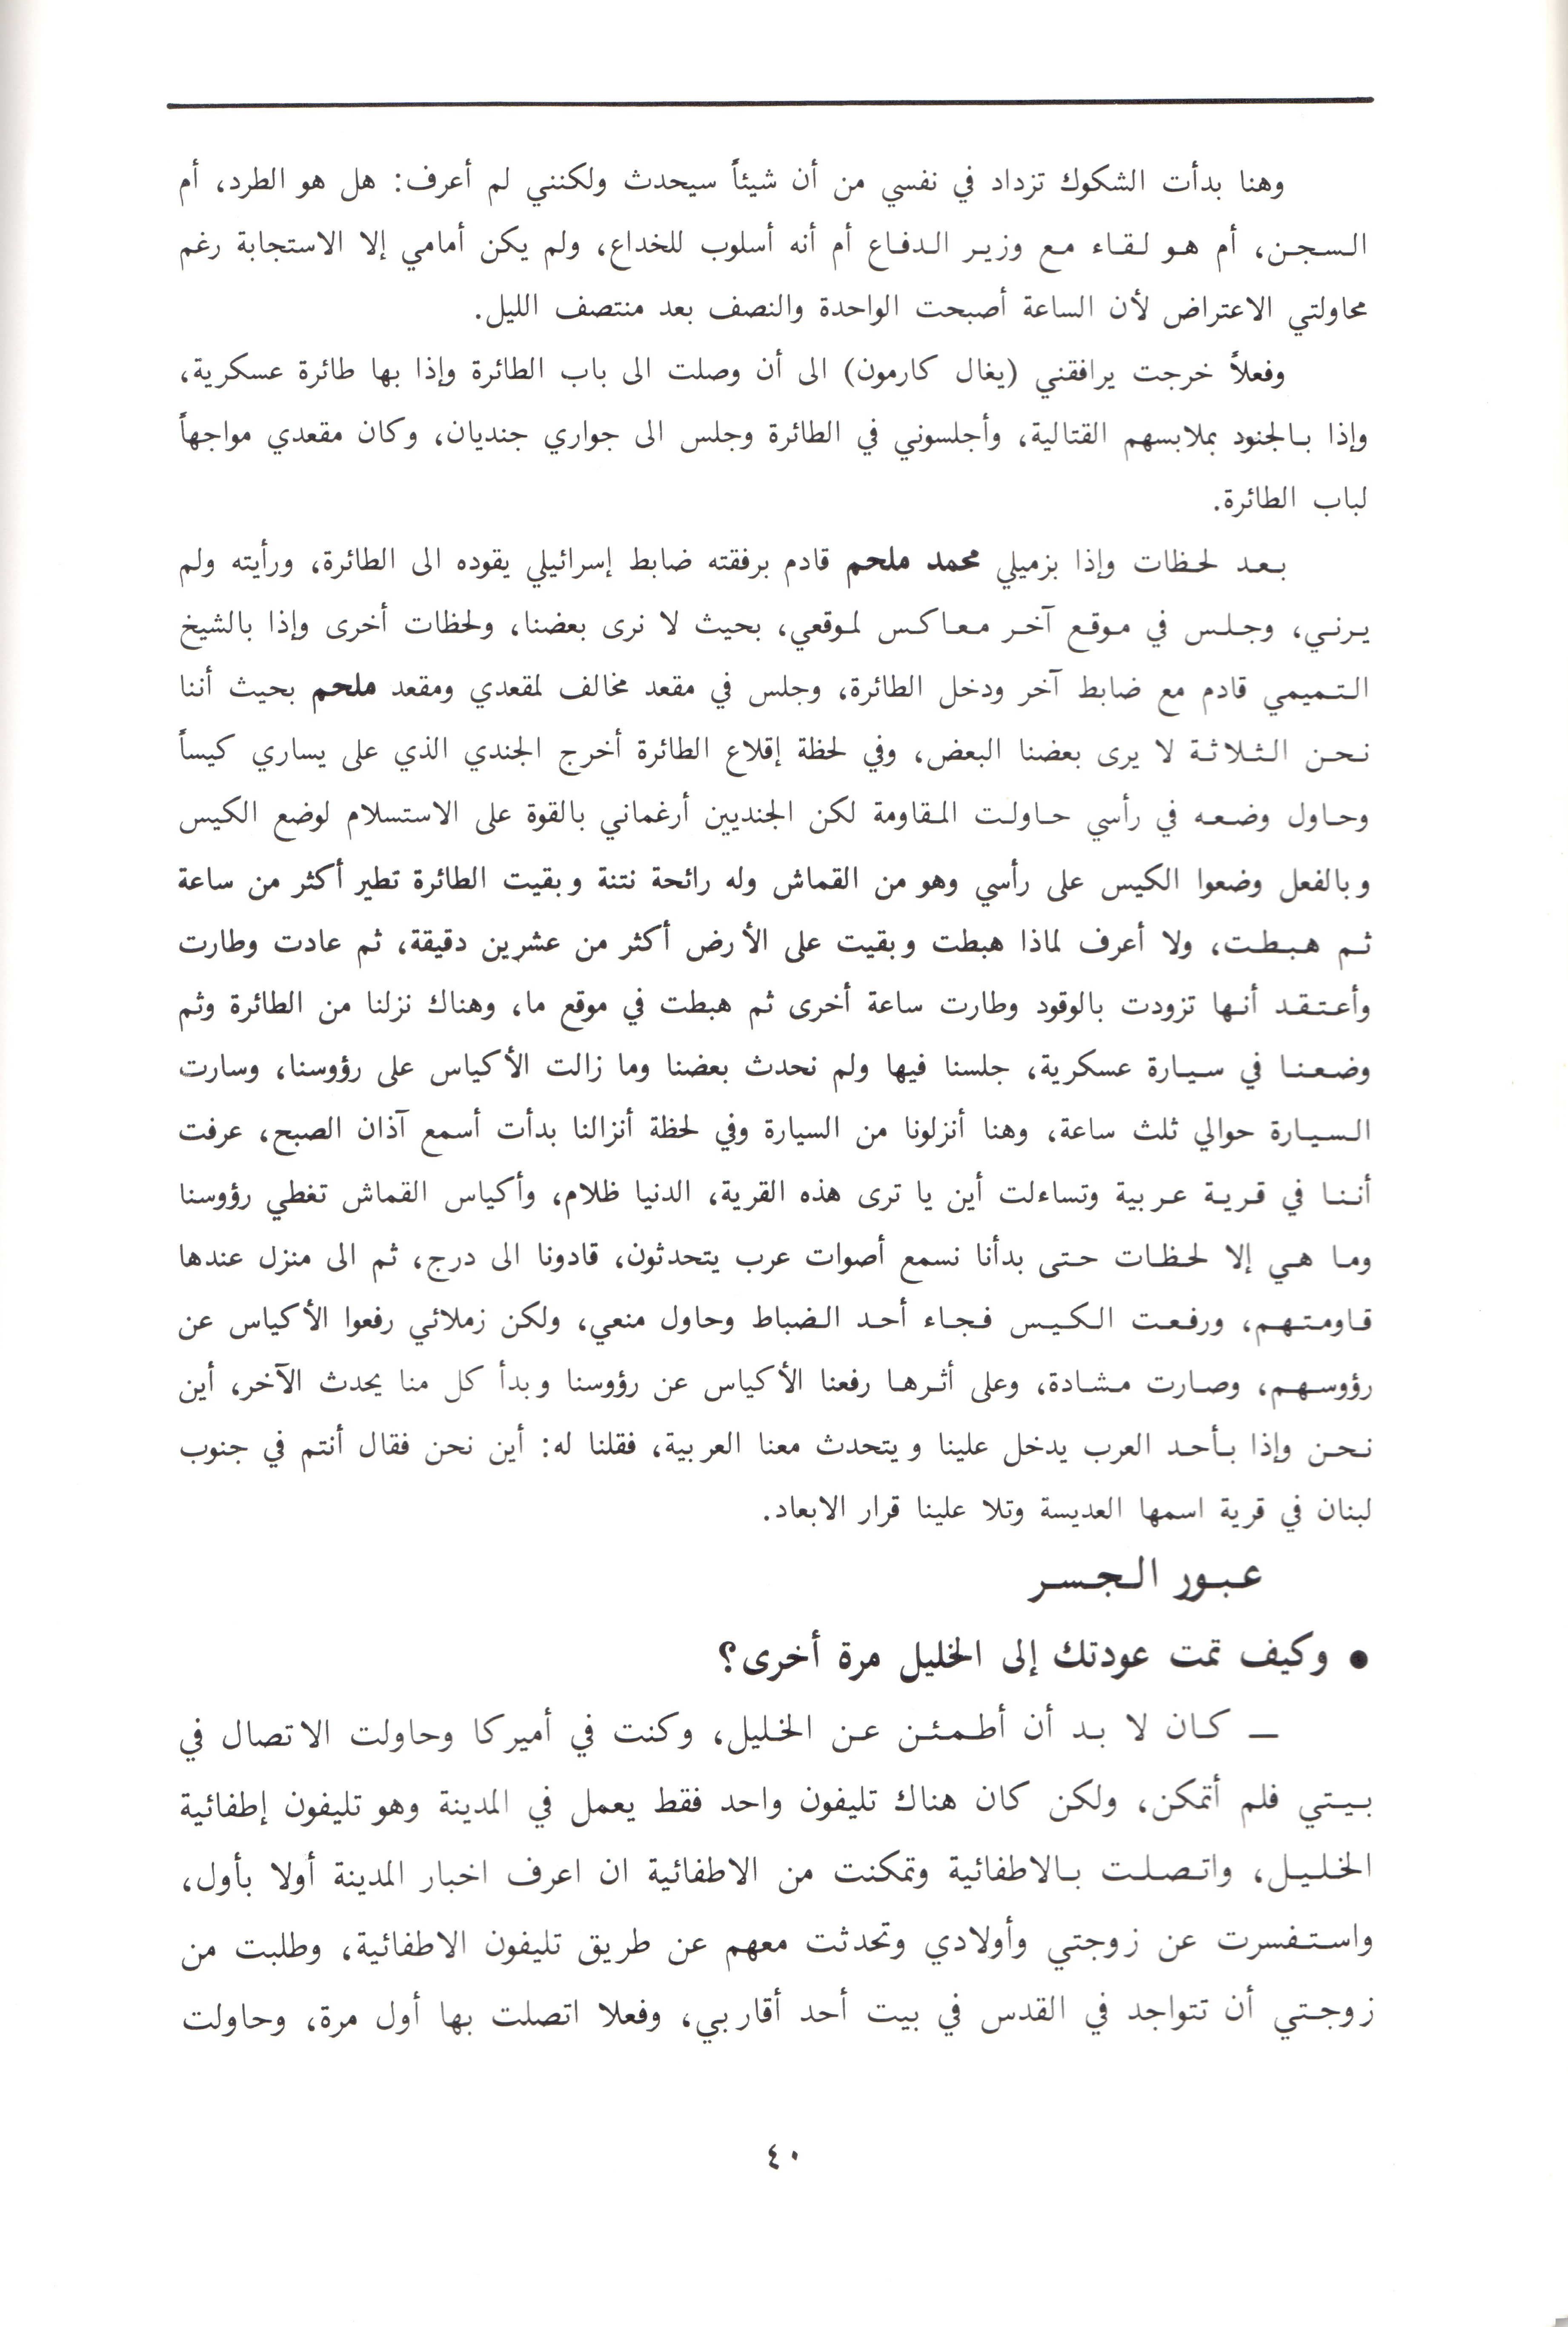 وهنا بدأت الشكوك تزداد في نفسي من أن شيئاً سيحدث ولكنني لم أعرف: هل هو الطرد، أم
السجن، أم هو لقاء مع وزير الدفاع أم أنه أسلوب للخداع، ولم يكن أمامي إلا الاستجابة رغم
محاولتي الاعتراض لأن الساعة أصبحت الواحدة والنصف بعد منتصف الليل.
وفعلاً خرجت يرافقني (يغال كارمون) الى أن وصلت الى باب الطائرة وإذا بها طائرة عسكرية،
وإذا بالجنود بملابسهم القتالية، وأجلسوني في الطائرة وجلس الى جواري جنديان، وكان مقعدي مواجهاً
لباب الطائرة.
بعد لحظات وإذا بزميلي محمد ملحم قادم برفقته ضابط إسرائيلي يقوده الى الطائرة، ورأيته ولم
يرني، وجلس في موقع آخر معاكس لموقعي، بحيث لا نرى بعضنا، ولحظات أخرى وإذا بالشيخ
التميمي قادم مع ضابط آخر ودخل الطائرة، وجلس في مقعد مخالف لمقعدي ومقعد ملحم بحيث أننا
نحن الثلاثة لا يرى بعضنا البعض، وفي لحظة إقلاع الطائرة أخرج الجندي الذي على يساري كيساً
وحاول وضعه في رأسي حاولت المقاومة لكن الجنديين أرغماني بالقوة على الاستسلام لوضع الكيس
وبالفعل وضعوا الكيس على رأسي وهو من القماش وله رائحة نتنة وبقيت الطائرة تطير أكثر من ساعة
ثم هبطت، ولا أعرف لماذا هبطت وبقيت على الأرض أكثر من عشرين دقيقة، ثم عادت وطارت
وأعتقد أنها تزودت بالوقود وطارت ساعة أخرى ثم هبطت في موقع ما، وهناك نزلنا من الطائرة وثم
وضعنا في سيارة عسكرية، جلسنا فيها ولم نحدث بعضنا وما زالت الأكياس على رؤوسنا، وسارت
السيارة حوالي ثلث ساعة، وهنا أنزلونا من السيارة وفي لحظة أنزالنا بدأت أسمع آذان الصبح، عرفت
أننا في قرية عربية وتساءلت أين يا ترى هذه القرية، الدنيا ظلام، وأكياس القماش تغطي رؤوسنا
وما هي إلا لحظات حتى بدأنا نسمع أصوات عرب يتحدثون، قادونا الى درج، ثم الى منزل عندها
قاومتهم، ورفعت الكيس فجاء أحد الضباط وحاول منعي، ولكن زملائي رفعوا الأكياس عن
رؤوسهم، وصارت مشادة، وعلى أثرها رفعنا الأكياس عن رؤوسنا وبدأ كل منا يحدث الآخر، أين
نحن وإذا بأحد العرب يدخل علينا ويتحدث معنا العربية، فقلنا له: أين نحن فقال أنتم في جنوب
لبنان في قرية اسمها العديسة وتلا علينا قرار الابعاد.
عبور الجسر
• وكيف تمت عودتك إلى الخليل مرة أخرى؟
— كان لا بد أن أطمئن عن الخليل، وكنت في أميركا وحاولت الاتصال في
بيتي فلم أتمكن، ولكن كان هناك تليفون واحد فقط يعمل في المدينة وهو تليفون إطفائية
الخليل، واتصلت بالاطفائية وتمكنت من الاطفائية ان اعرف اخبار المدينة أولا بأول،
واستفسرت عن زوجتي وأولادي وتحدثت معهم عن طريق تليفون الاطفائية، وطلبت من
زوجتي أن تتواجد في القدس في بيت أحد أقاربي، وفعلا اتصلت بها أول مرة، وحاولت
٤٠